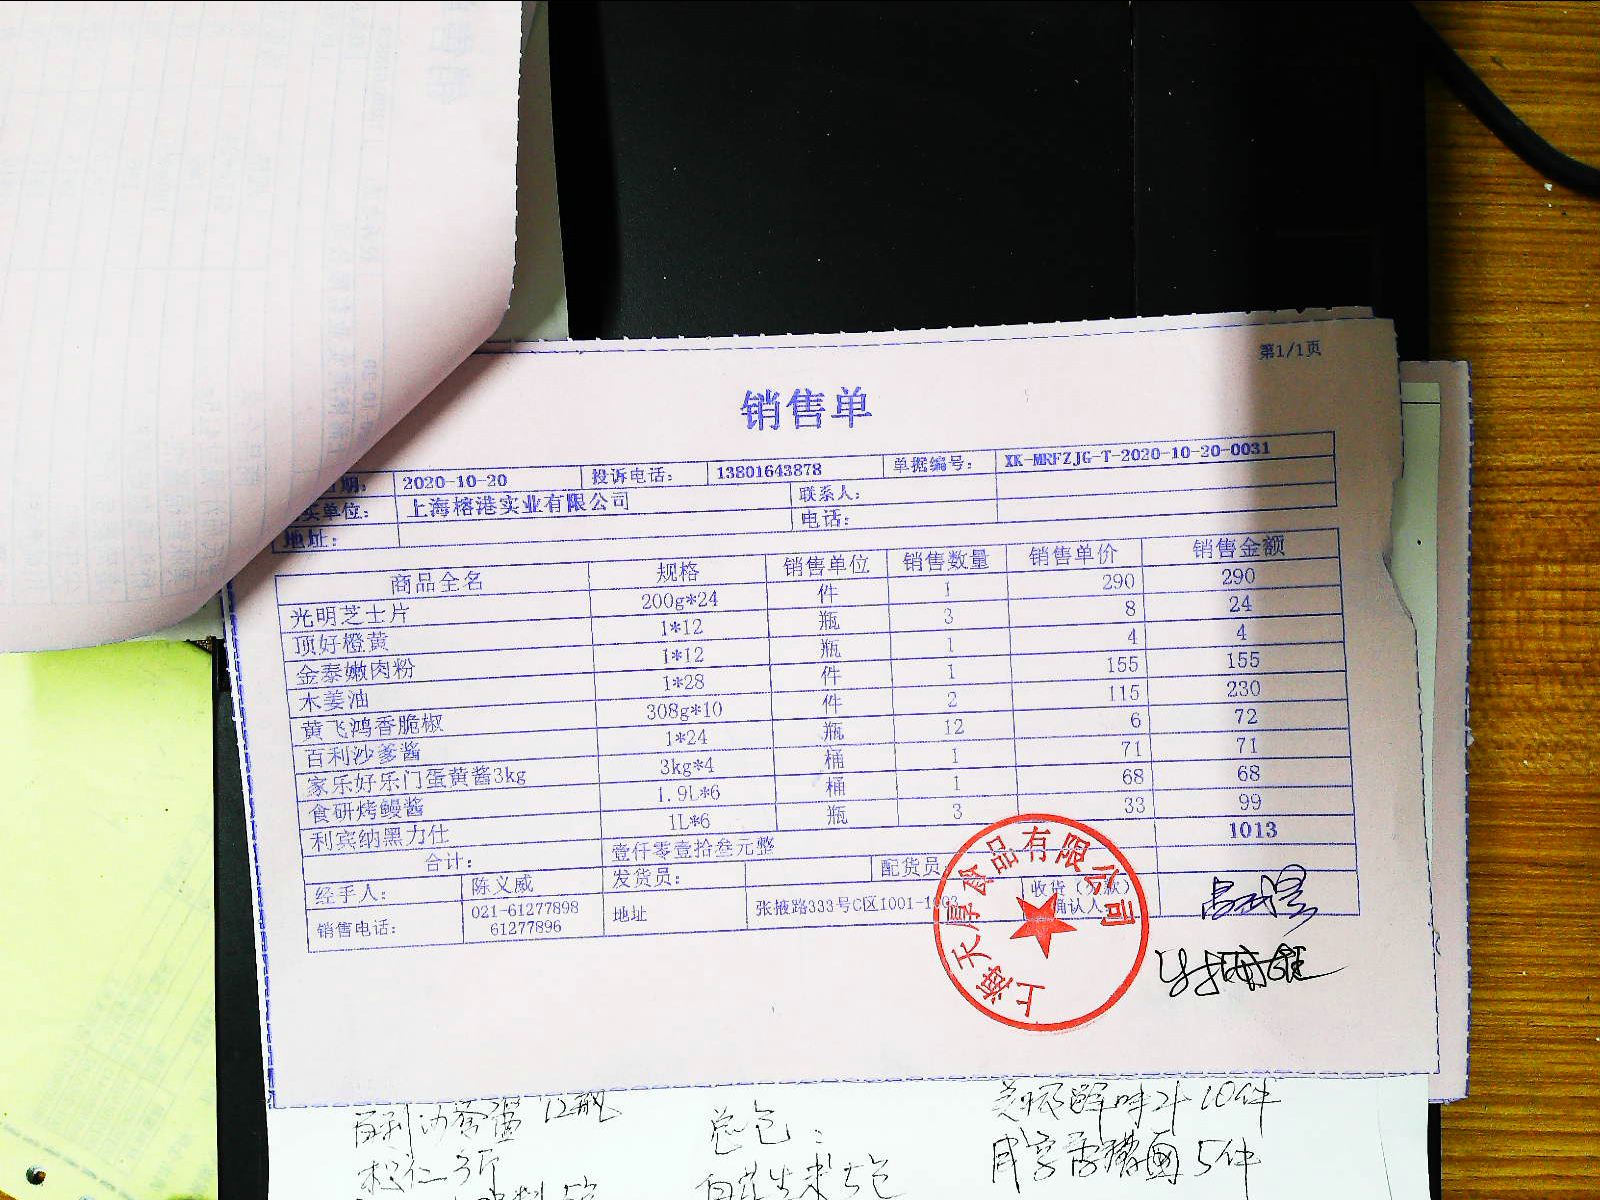 第1/1页
销售单
期: 2020-10-20 投诉电话: 13801643878 单据编号: XK-MRFZJG-T-2020-10-20-0031
买单位: 上海榕港实业有限公司 联系人:
地址: 电话:
商品全名 规格 销售单位 销售数量 销售单价 销售金额
光明芝士片 200g*24 件 1 290 290
顶好橙黄 1*12 瓶 3 8 24
金泰嫩肉粉 1*12 瓶 1 4 4
木姜油 1*28 件 1 155 155
黄飞鸿香脆椒 308g*10 件 2 115 230
百利沙爹酱 1*24 瓶 12 6 72
家乐好乐门蛋黄酱3kg 3kg*4 桶 1 71 71
食研烤鳗酱 1.9L*6 桶 1 68 68
利宾纳黑力仕 1L*6 瓶 3 33 99
合计: 壹仟零壹拾叁元整 1013
经手人: 陈义威 发货员: 配货员 收货(欠款)确认人
销售电话: 021-61277898 61277896 地址 张掖路333号C区1001-1003
上海天厚食品有限公司
百利沙爹酱 12瓶 总仓: 美极鲜味汁 10件
松仁3斤 白花生米5包 5件